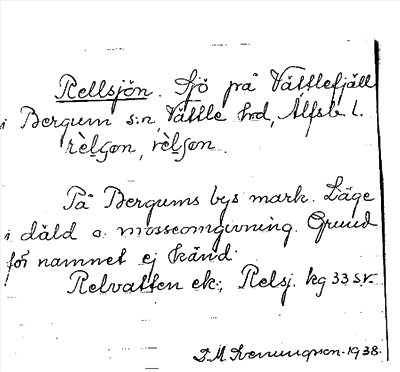 Rellsjön. Sjö på Vättlefjäll
i Bergum s:n, Vättle hrd, Älfsb. l.
rèlʂøn, rèlʂon.
På Bergums bys mark. Läge
i däld o. mosseomgivning. Grund
för namnet ej känd.
Relvatten ek; Relsj. kg 33 s.v.
1938.